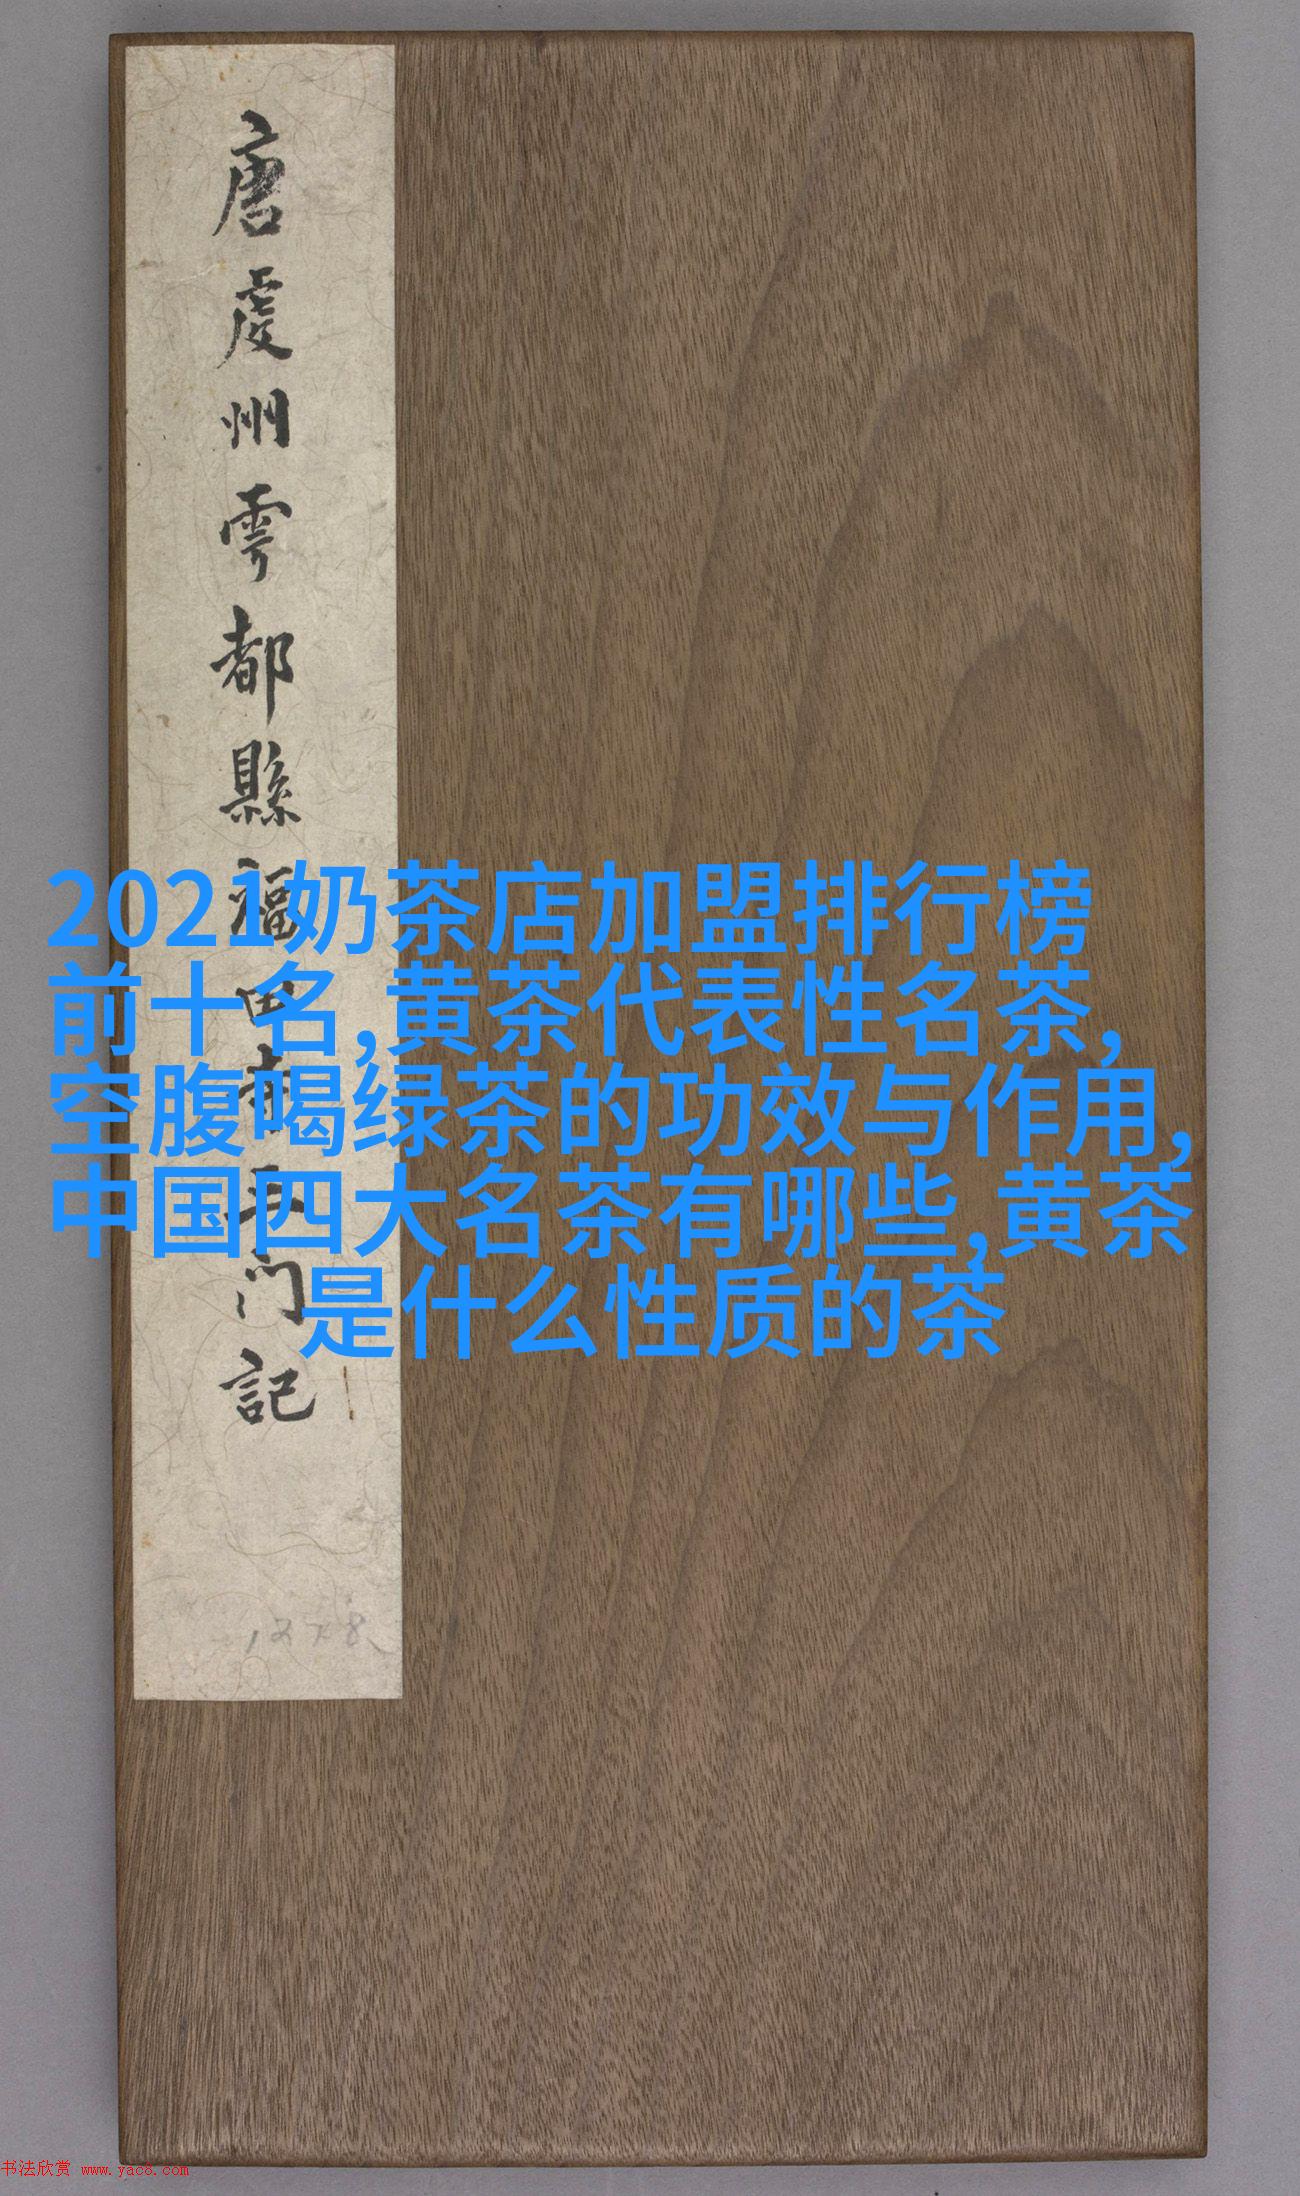 唐虔州雩都縣福田寺三門記
1278
2021奶茶店加盟排行榜
前十名,黄茶代表性名茶,
空腹喝绿茶的功效与作用,
中国四大名茶有哪些,黄茶
是什么性质的茶
书法欣赏 www.yac8.com